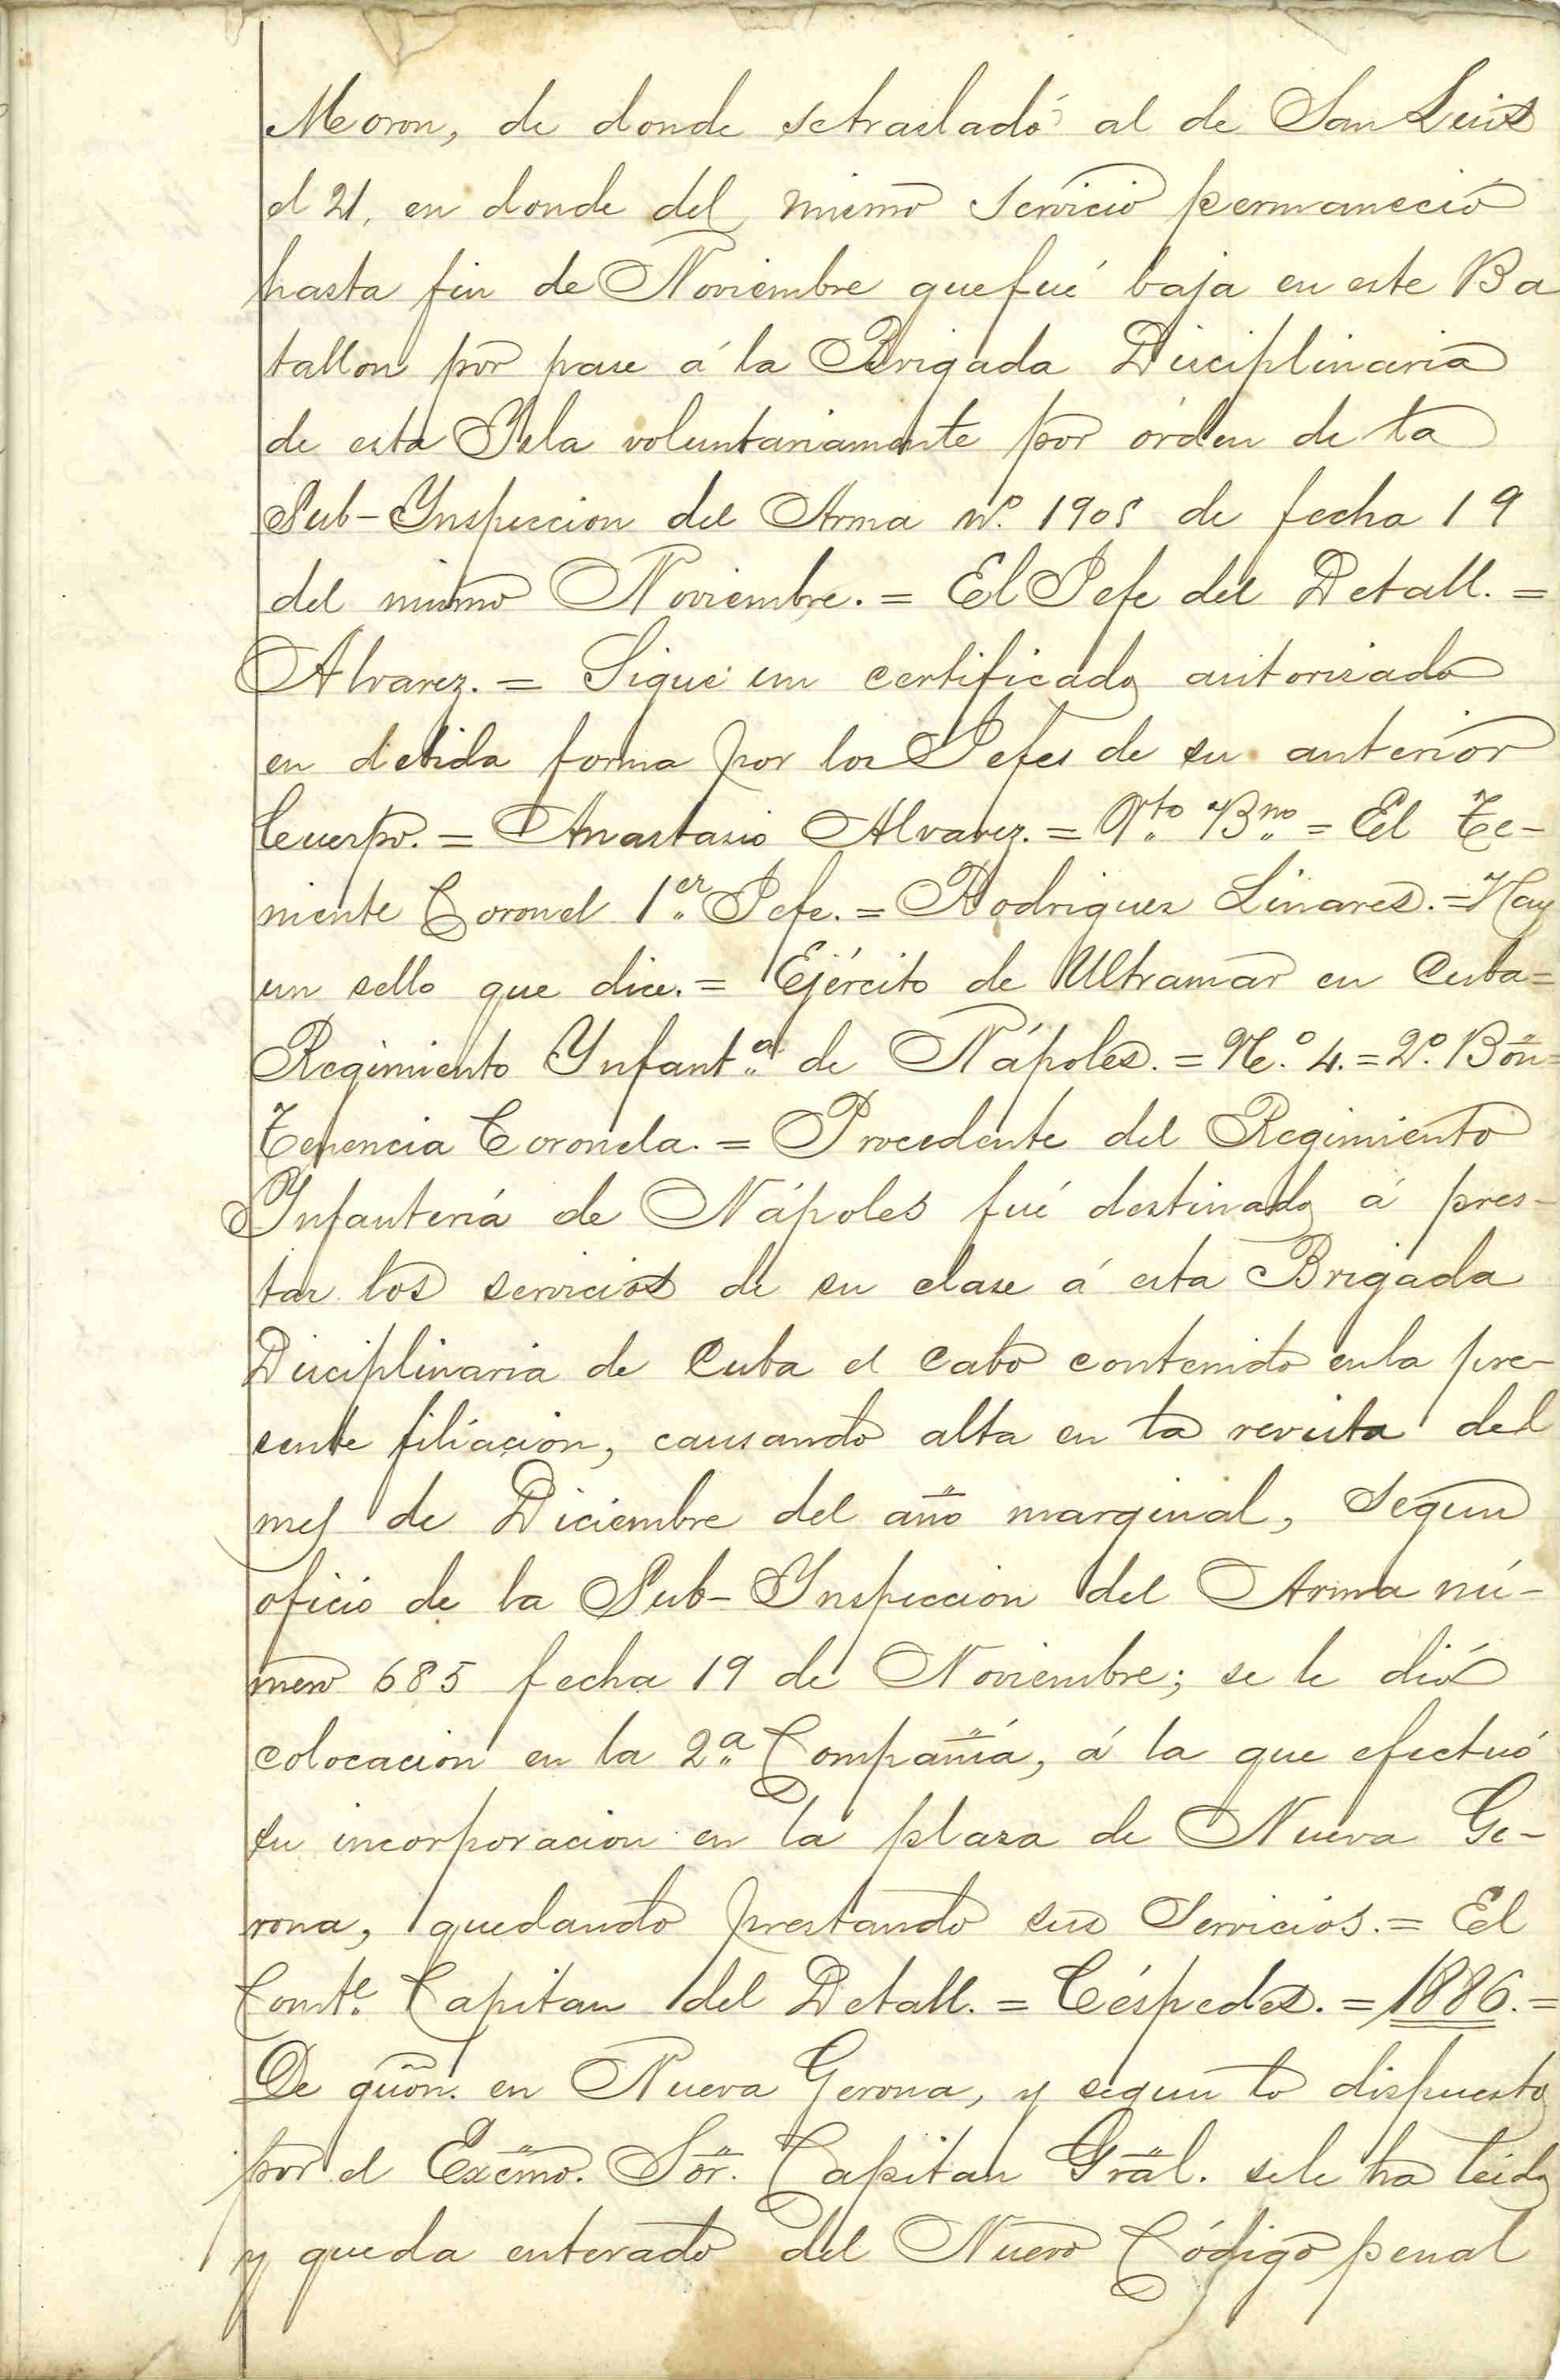 Moron, de donde setrasladó al de San Luis
el 21, en donde del mismo servicio permaneció
hasta fin de Noviembre quefué baja en este Ba
tallon por pase á la Brigada Disciplinaria
de esta Isla voluntariamente por órden de la
Sub-Ynspeccion del Arma nº. 1905 de fecha 19
del mismo Noviembre. = El Jefe del Detall. =
Alvarez. = Sigue un certificado autorisado
en debida forma por los Jefes de su anterior
Cuerpo. = Anastasio Alvarez. = Vto Bno = El Te-
niente Coronel 1er Jefe. = Rodriguez Linares. = Hay
un sello que dice. = Ejército de Ultramar en Cuba=
Regimiento Ynfantª de Nápoles. = N.º 4. = 2º. Bōn=
Tenencia Coronela. = Procedente del Regimiento
Ynfantería de Nápoles fué destinado á pres-
tar los servicios de su clase á esta Brigada
Disciplinaria de Cuba el Cabo contenido enla pre-
sente filiacion, causando alta en la revista del
mes de Diciembre del año marginal, segun
oficio de la Sub-Ynspeccion del Arma nú-
mero 685 fecha 19 de Noviembre; se le dió
colocacion en la 2ª Compañía, á la que efectuó
su incorporacion en la plaza de Nueva Ge-
rona, quedando prestando sus servicios. = El
Comte. Capitan del Detall. = Céspedes. = 1886. =
De gūon. en Nueva Gerona, y segun lo dispuesto
por el Excmo. Sor. Capitan Gral. sele ha leido
y queda enterado del Nuevo Código penal